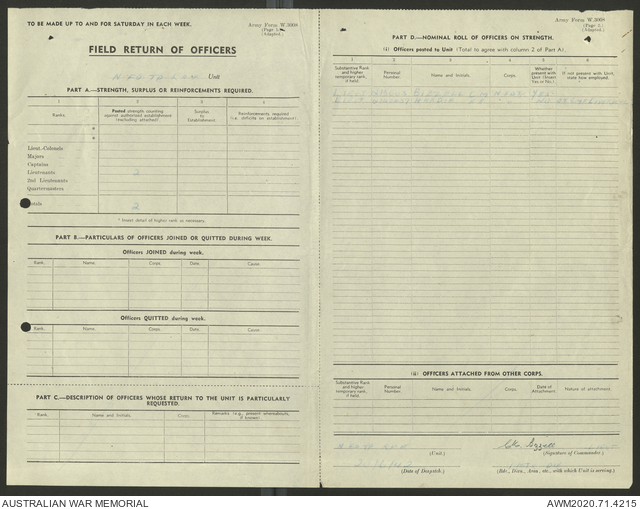 TO BE MADE UP TO AND FOR SATURDAY IN EACH WEEK.
Army Form W.3008
(Page 1.
(Adapted.)
FIELD RETURN OF OFFICERS
Unit
PART A.—STRENGTH, SURPLUS OR REINFORCEMENTS REQUIRED.
1 2 3 4
Ranks. Posted strength counting against authorised establishment (excluding attached) Surplus to Establishment. Reinforcements required (i.e. deficits on establishment)
*
*
Lieut.-Colonels
Majors
Captains
Lieutenants 2
2nd Lieutenants
Quartermasters
Totals 2
* Insert detail of higher rank as necessary.
PART B.—PARTICULARS OF OFFICERS JOINED OR QUITTED DURING WEEK.
Officers JOINED during week.
Rank. Name. Corps. Date. Cause.
Officers QUITTED during week.
Rank. Name. Corps. Date. Cause.
PART C.—DESCRIPTION OF OFFICERS WHOSE RETURN TO THE UNIT IS PARTICULARLY REQUESTED.
Rank. Name and Initials. Corps. Remarks (e.g., present whereabouts, if known)
Army Form W.3008
(Page 2.)
(Adapted.)
PART D.—NOMINAL ROLL OF OFFICERS ON STRENGTH.
(i) Officers posted to Unit (Total to agree with column 2 of Part A).
1 2 3 4 5 6
Substantive Rank and higher temporary rank, if held. Personal Number. Name and Initials. Corps. Whether present with Unit (Insert Yes or No.) If not present with Unit, state how employed.
(ii) OFFICERS ATTACHED FROM OTHER CORPS.
Substantive Rank and higher temporary rank, if held. Personal Number. Name and Initials. Corps. Date of Attachment. Nature of attachment.
(Unit)
(Signature of Commander)
(Date of Despatch)
(Bde., Divn., Area, etc., with which Unit is serving)
AUSTRALIAN WAR MEMORIAL
AWM2020.71.4215